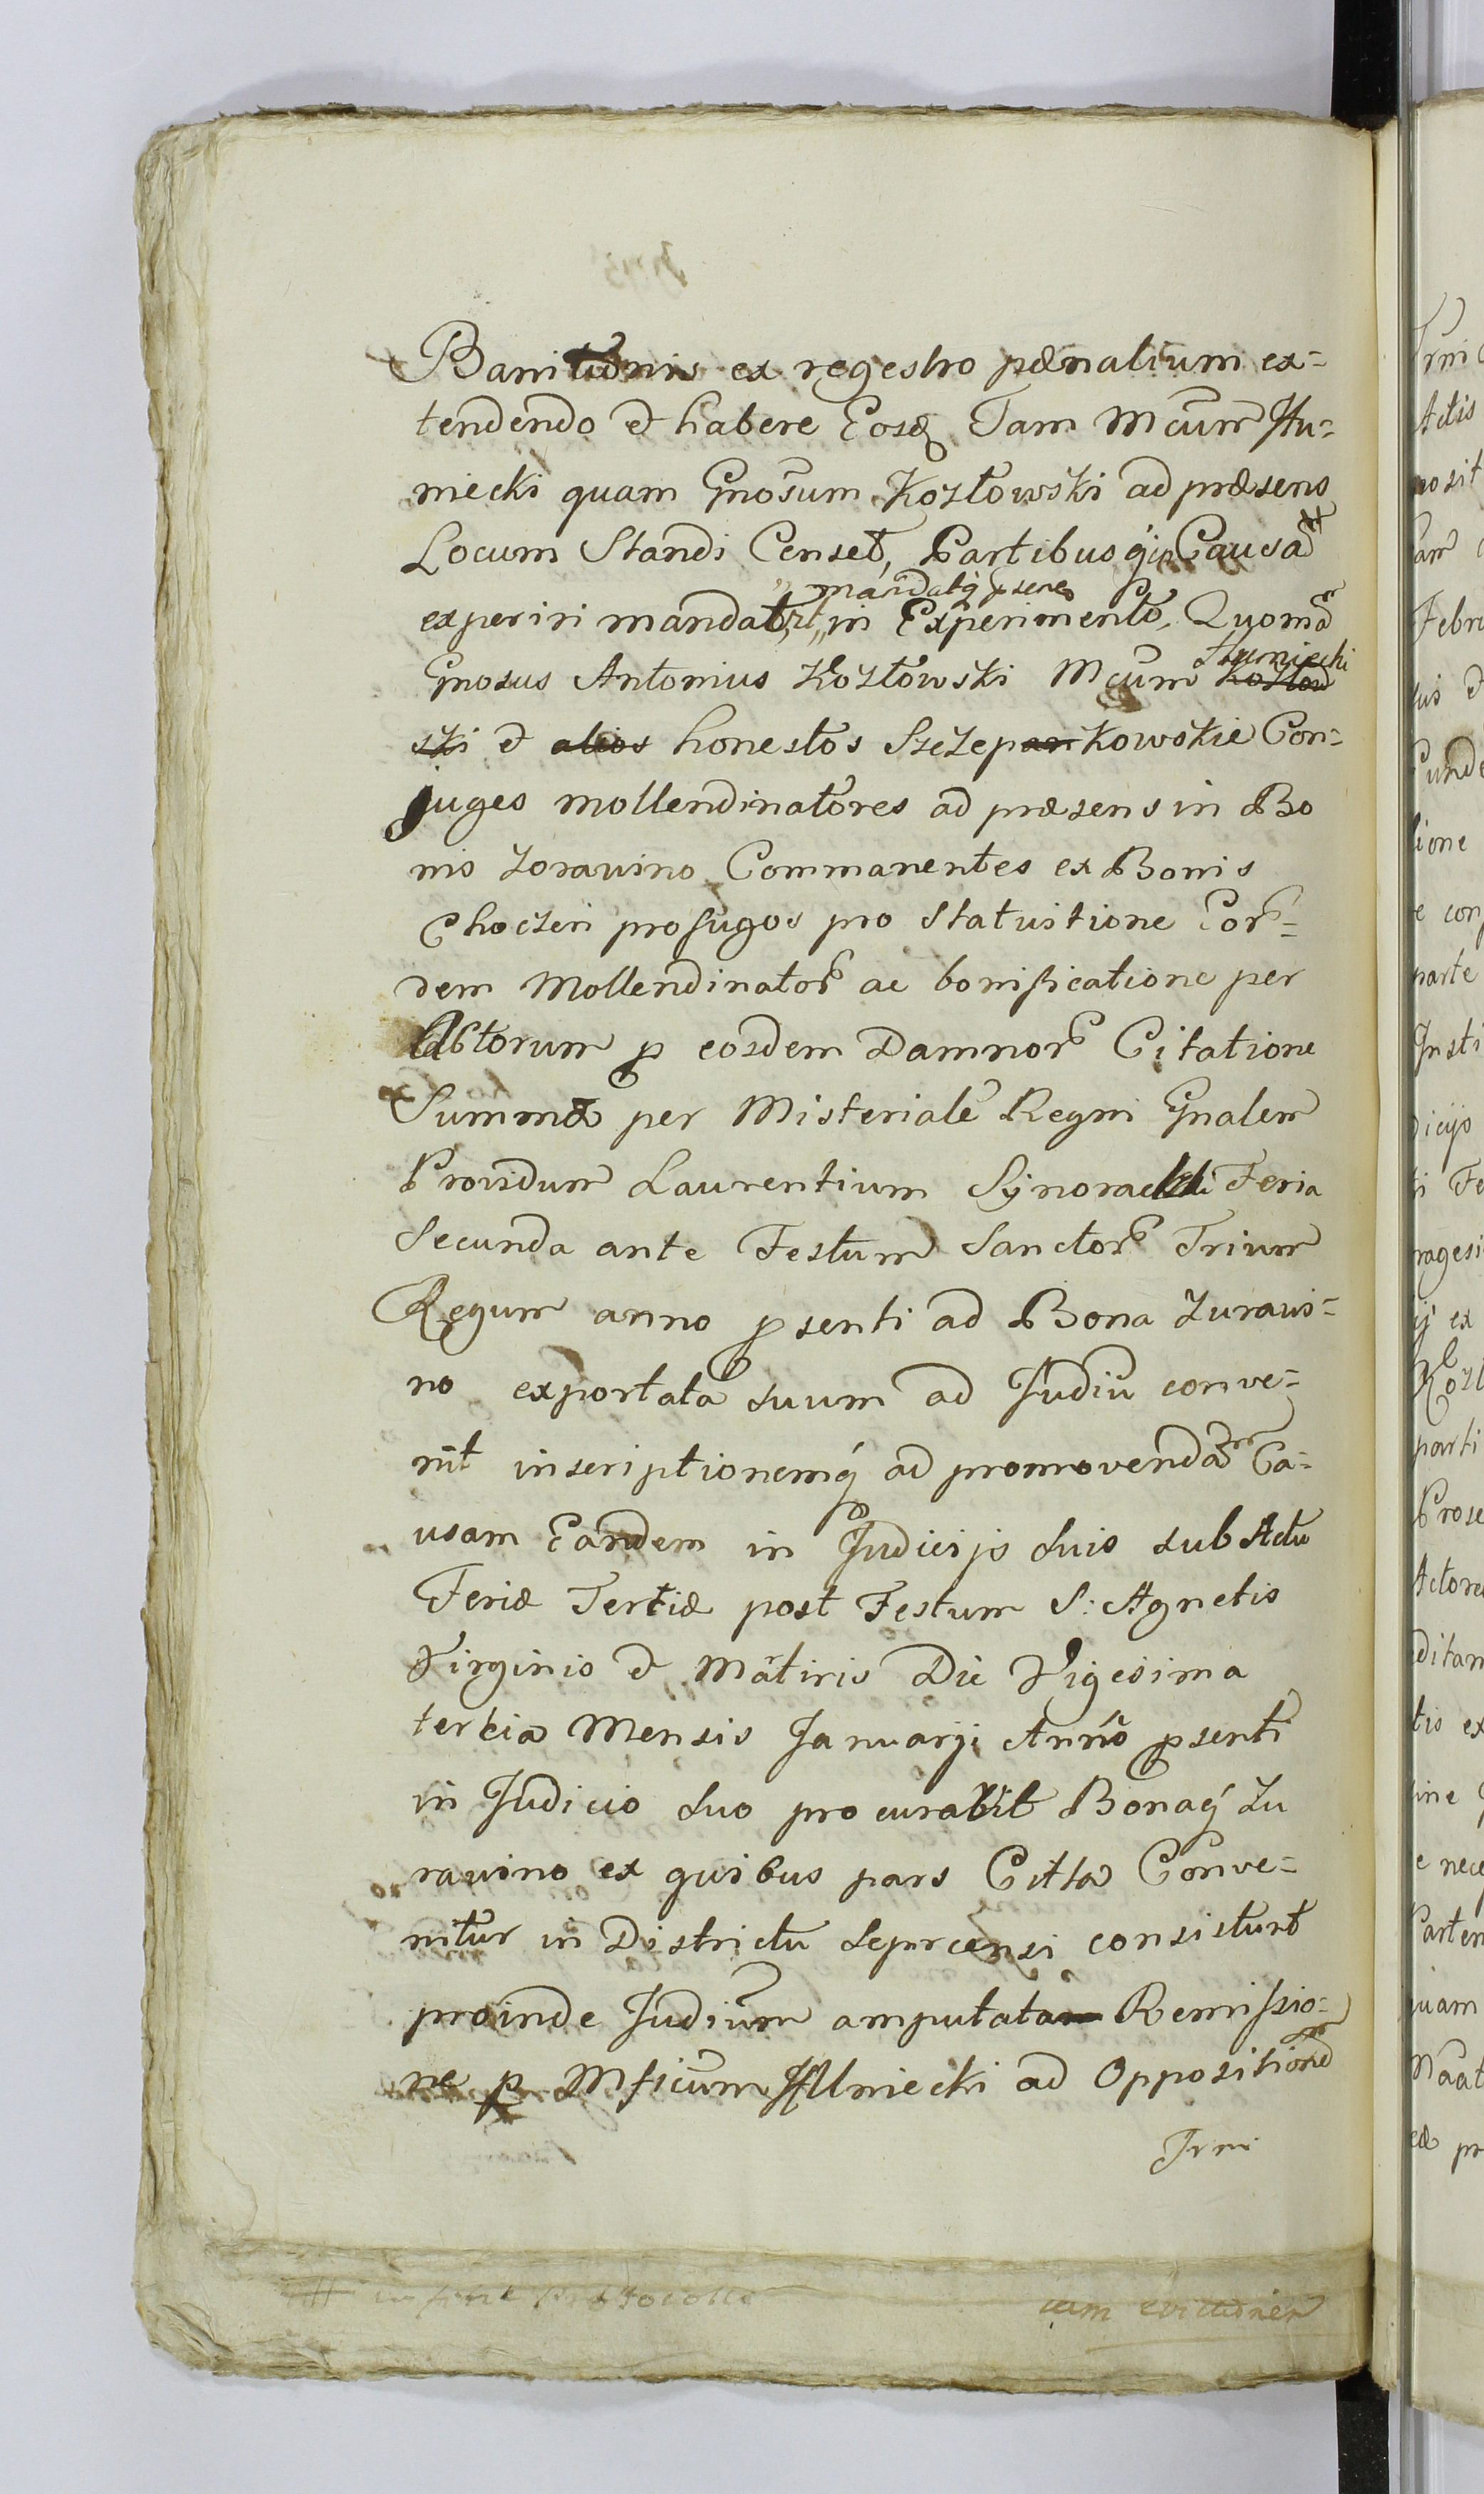 Banitionis ex regestro pænalium ex=
tendendo et habere Eosq Tam Mcum Hu=
miecki quam Gnosum Kozłowski ad præsens
Locum Standi Censet, Partibus qȝ in Causa #
experiri mandat, mandatq pseres
in Experimento, Quoma
Gnosus Antonius Kozłowski Mcum Humiecki Kozłow
ski et alios honestos Szczepankowskie Con=
juges mollendinatores ad præsens in Bo
nis Zorawino Commanentes ex Bonis
Choczen profugos pro Statuitione Eor=
dem Mollendinator ac bonificatione per
Actorum p eosdem Damnor Citatione
Summa per Misteriale Regni Gnalem
Providum Laurentium Synoracki Feria
Secunda ante Festum Sanctor Trium
Regum anno psenti ad Bona Zurawi=
no exportata suum ad Judiu conve=
nit inscriptionemq ad promovendam Ca=
usam Eandem in Judicijs suis sub Actu
Feriæ Tertiæ post Festum S: Agnetis
Virginis et Mãtiris Die Vigesima
tertia Mensis Januarji Anno psenti
in Judicio suo procuravit Bonaq Zu
rawino ex quibus pars Citta Conve=
nitur in Districtu Seprcensi consistunt
proinde Judium amputatam Remissio=
ne p Mficum Humiecki ad Oppositionem
Trni
# in fine Protocolli
cum evictionem
Trni
Actis